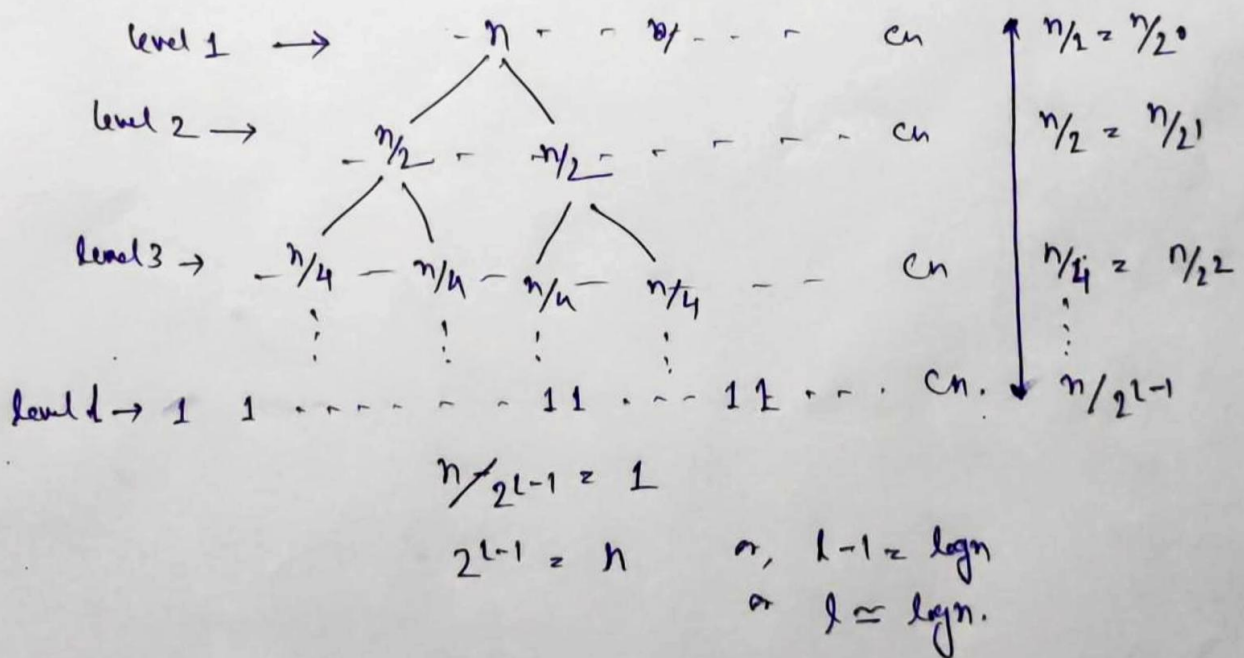 level 1 → n cn n/1 = n/2⁰
level 2 → n/2 n/2 cn n/2 = n/2¹
level 3 → n/4 n/4 n/4 n/4 cn n/4 = n/2²
level l → 1 1 ........ 1 1 .... 1 1 .... cn. n/2ˡ⁻¹
n/2ˡ⁻¹ = 1
2ˡ⁻¹ = n or, l-1 = logn
or l ≃ logn.